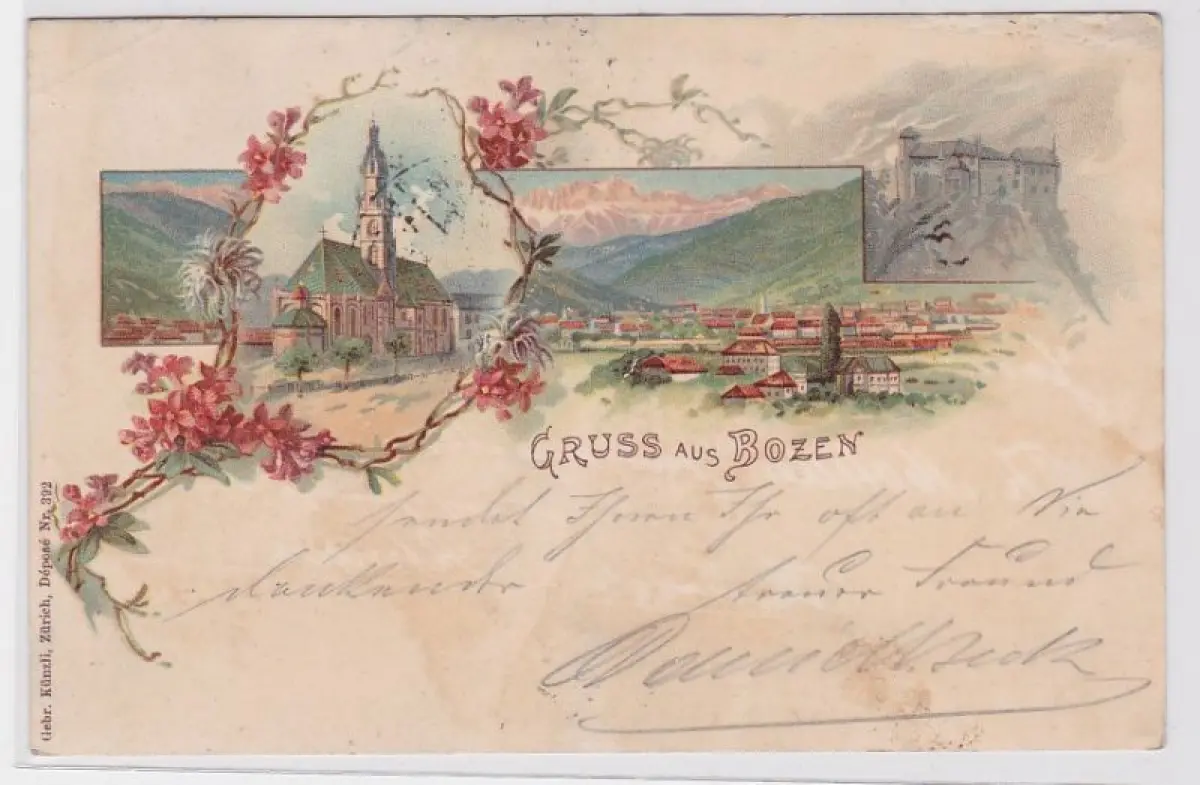 GRUSS AUS BOZEN
sendet Ihnen Ihr oft an Sie
denkender treuer Freund
Gebr. Künzli, Zürich, Déposé Nr. 392